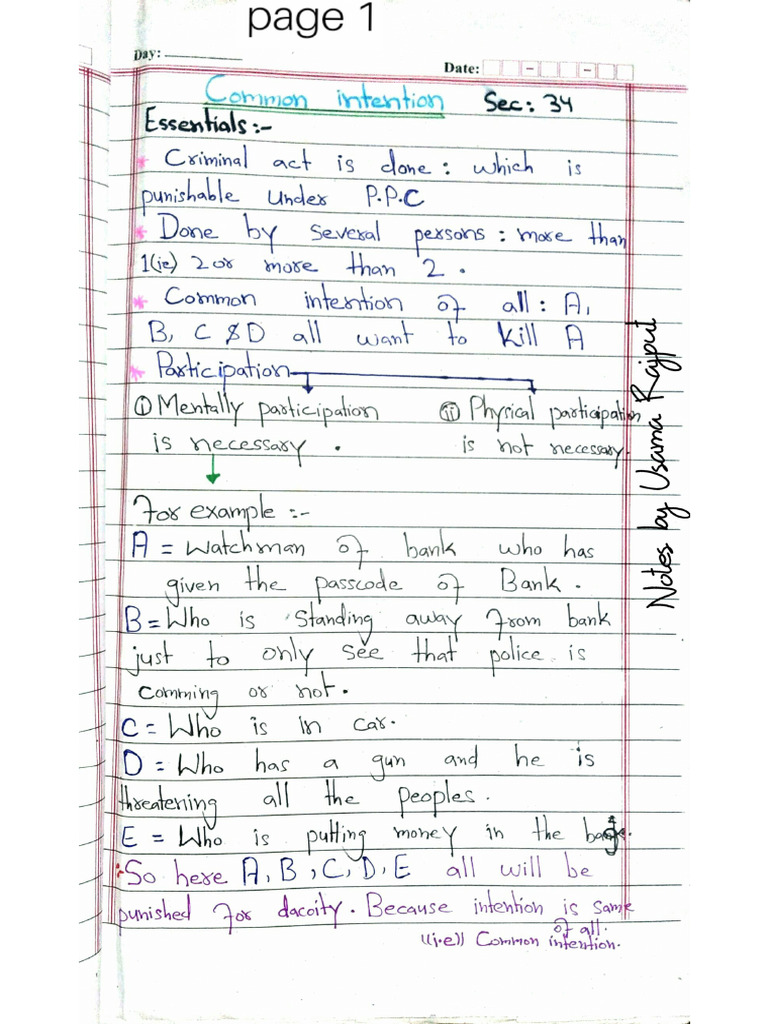 page 1
Day:
Date: - -
Common intention Sec: 34
Essentials:-
* Criminal act is done: which is
punishable under P.P.C
* Done by several persons: more than
1(ie) 2 or more than 2.
* Common intention of all: A,
B, C & D all want to kill A
* Participation
(i) Mentally participation (ii) Physical participation
is necessary. is not necessary.
For example :-
A = Watchman of bank who has
given the passcode of Bank.
B = Who is standing away from bank
just to only see that police is
comming or not.
C = Who is in car.
D = Who has a gun and he is
threatening all the peoples.
E = Who is putting money in the
So here A, B, C, D, E all will be
punished for dacoity. Because intention is same
of all.
((i.e)) Common intention.
Notes by Usama Rajput